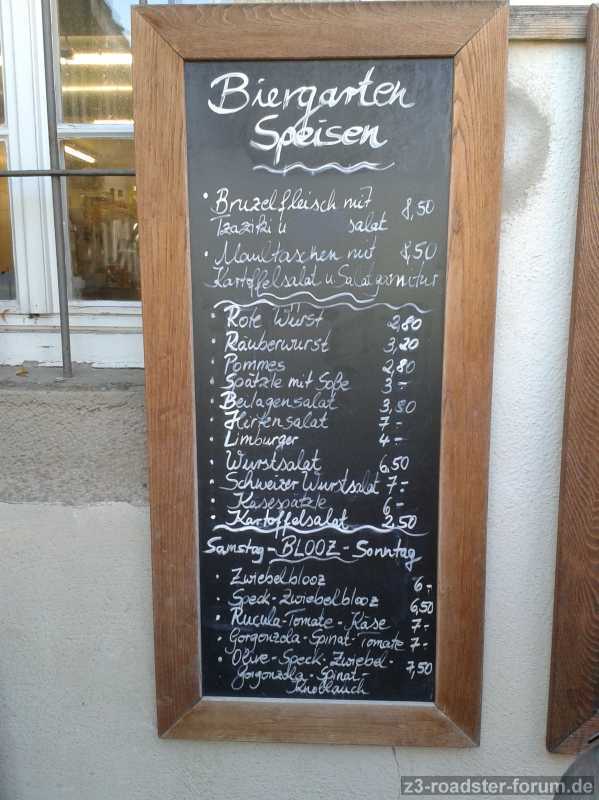 Biergarten
Speisen
• Bruzelfleisch mit 8,50
Tzaziki u salat
• Maultaschen mit 8,50
Kartoffelsalat u Salatgarnitur
• Rote Wurst 2,80
• Räuberwurst 3,20
• Pommes 2,80
• Spätzle mit Soße 3.-
• Beilagensalat 3,80
• Hirtensalat 7.-
• Limburger 4.-
• Wurstsalat 6,50
• Schweizer Wurstsalat 7.-
• Käsespätzle 6-
• Kartoffelsalat 2,50
Samstag - BLOOZ - Sonntag
• Zwiebelblooz 6-
• Speck-Zwiebelblooz 6,50
• Rucula-Tomate-Käse 7-
• Gorgonzola-Spinat-Tomate 7-
• Olive-Speck-Zwiebel- 7,50
Gorgonzola-Spinat-
Knoblauch
z3-roadster-forum.de